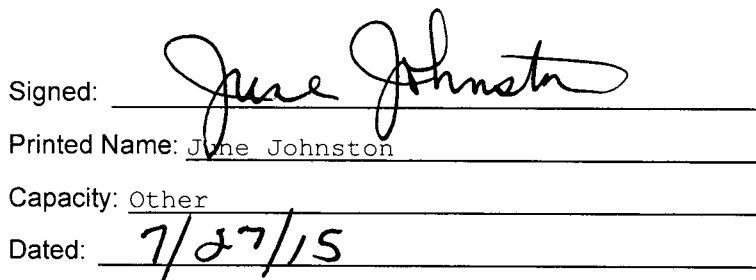 Signed: June Johnston
Printed Name: June Johnston
Capacity: Other
Dated: 7/27/15